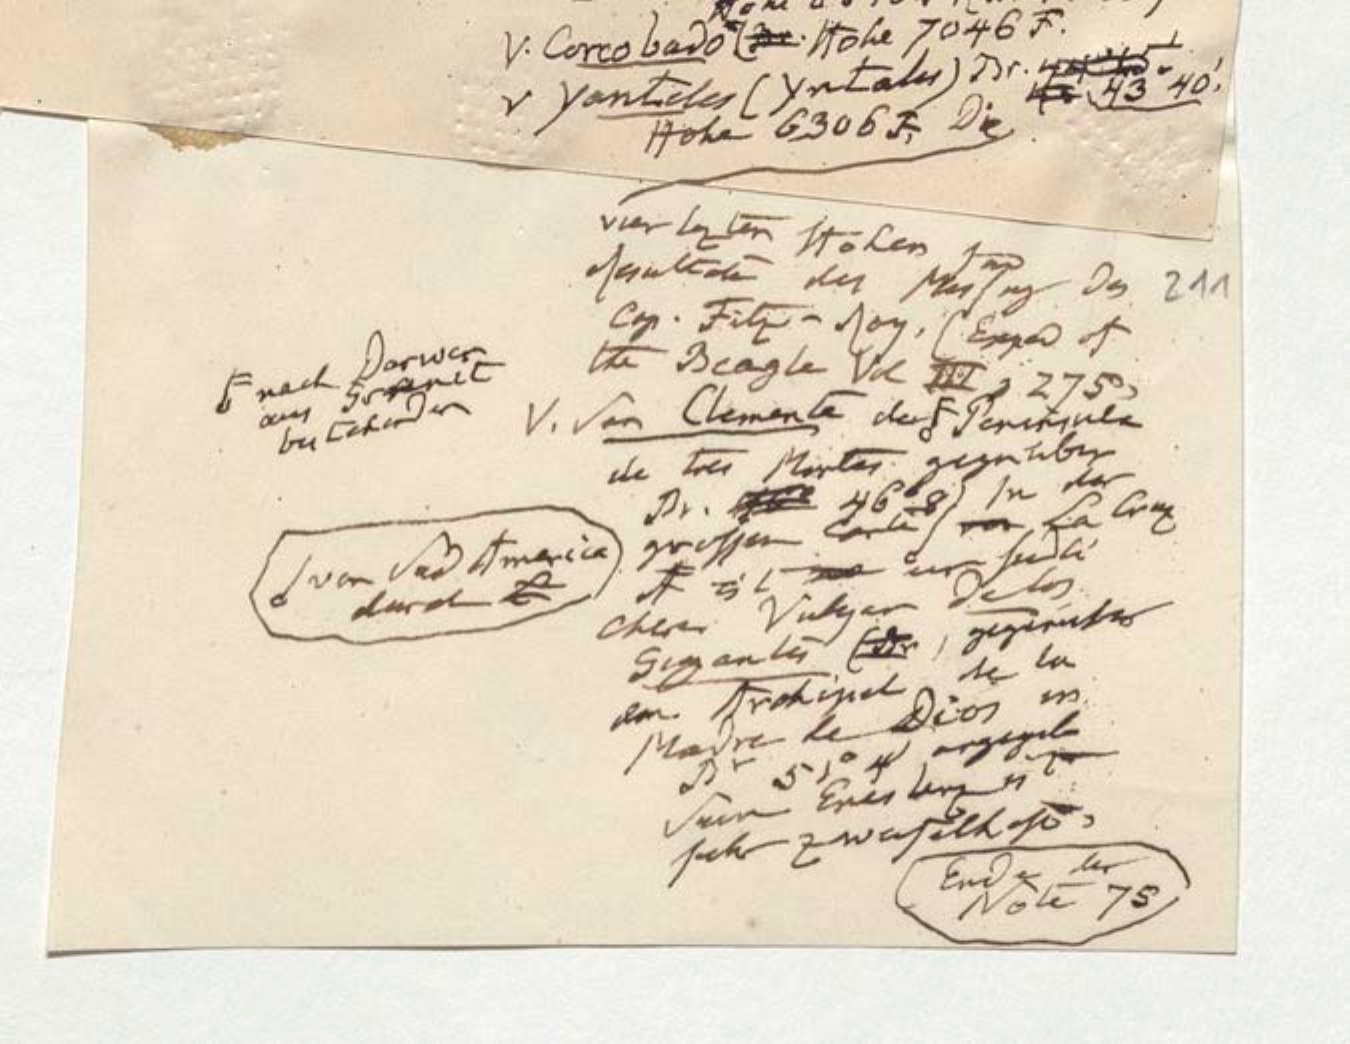 V. Corcobado (Br. Höhe 7046 F.
V Yanteles (Yntales) Br. 43° 40'.
Höhe 6306 F. Die
vier lezten Höhen sind
Resultate der Messung des
Cap. Fitz-Roy. (Exped of
the Beagle Vol III p 275)
V. San Clemente der Peninsula
de tres Montes gegenüber
Br. 46° 8') In der
grossen Carte von La Cruz
ist ein südli
cherer Vulkan De los
Gigantes (Br, gegenüber
dem Archipel de la
Madre de Dios in
Br 51° 4' angegeb
Seine Existenz ist
sehr zweifelhaft.
Ende der
Note 75
nach Darwin
aus Granit
bestehenden
von Süd America
durch
211